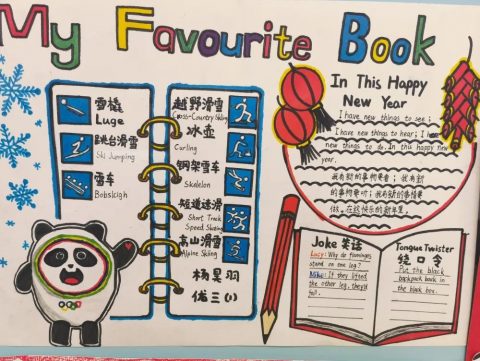 My Favourite Book
雪橇
Luge
跳台滑雪
Ski Jumping
雪车
Bobsleigh
越野滑雪
Cross-Country Skiing
冰壶
Curling
钢架雪车
Skeleton
短道速滑
Short Track
Speed Skating
高山滑雪
Alpine Skiing
杨昊羽
In This Happy
New Year
I have new things to see;
I have new things to hear; I have
new things to do. In this happy new
year.
我有新的事物要看; 我有新
的事物要听; 我有新的事情要
做。在这快乐的新年里。
Joke 笑话
Lucy: Why do flamingos
stand on one leg?
Mike: If they lifted
the other leg, they'd
fall.
Tongue Twister
绕口令
Put the black
backpack back in
the black box.